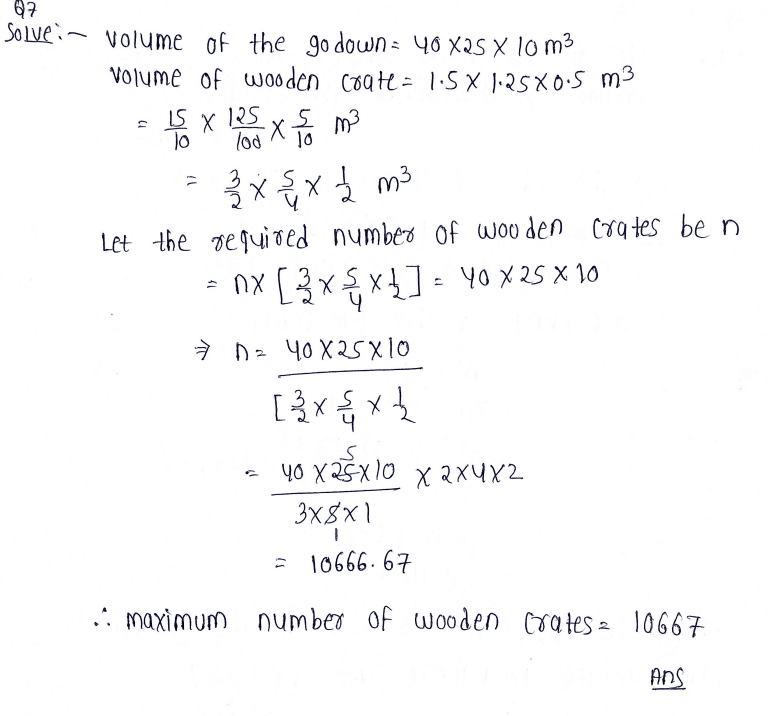 Q7
Solve:- volume of the godown = 40 X 25 X 10 m³
volume of wooden crate = 1.5 X 1.25 X 0.5 m³
= 15/10 X 125/100 X 5/10 m³
= 3/2 X 5/4 X 1/2 m³
Let the required number of wooden crates be n
= n X [3/2 X 5/4 X 1/2] = 40 X 25 X 10
⇒ n = 40 X 25 X 10
[3/2 X 5/4 X 1/2
5
= 40 X 25 X 10 X 2 X 4 X 2
3 X 5 X 1
1
= 10666.67
∴ maximum number of wooden crates = 10667
Ans